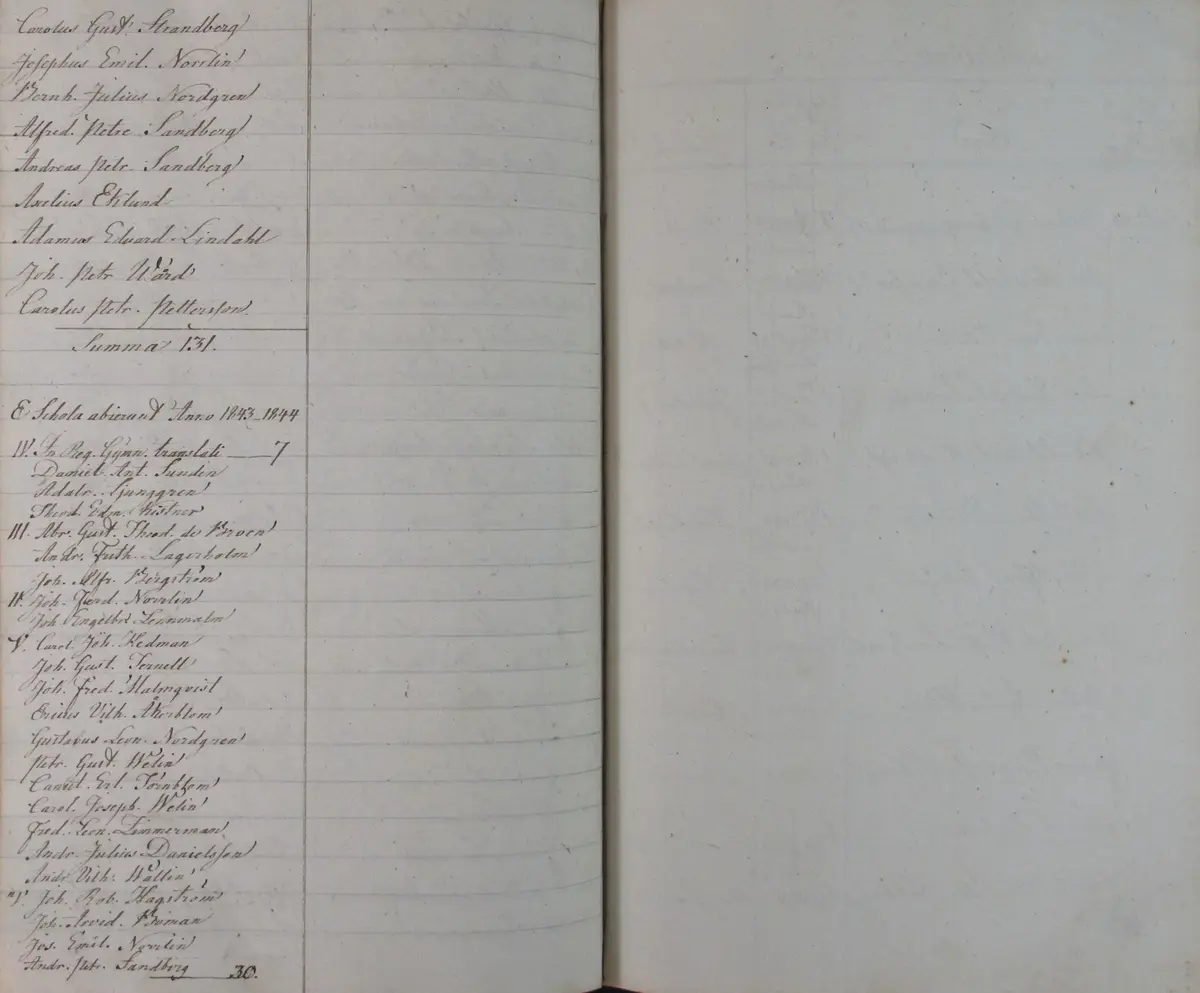 Carolus Gust. Strandberg
Josephus Emil. Norrlin
Bernh. Julius Nordgren
Alfred. Petre Sandberg
Andreas Petr. Sandberg
Axelius Eklund
Adamus Edvard Lindahl
Joh. Petr. Wård
Carolus Petr. Pettersson.
Summa 131.
E Schola abierunt Anno 1843_1844
IV. In Reg. Gymn. translati — 7
Daniel Ant. Sundin
Adalr. Ljunggren
Theod. Edm. Kistner
III. Abr. Gust. Theod. de Broen
Andr. Frith. Lagerholm
Joh. Alfr. Bergström
II. Joh. Ferd. Norrlin
Joh. Engelbr. Lennmalm
V. Carol. Joh. Hedman
Joh. Gust. Ternell
Joh. Fred. Malmqvist
Ericus Vilh. Åkerblom
Gustavus Leon. Nordgren
Petr. Gust. Welin
Erl. Törnblom
Carol. Joseph. Welin
Fred. Leon. Zimmerman
Andr. Julius Danielsson
Andr. Vilh. Wallin
Joh. Rob. Hagström
Joh. Arvid. Boman
Jos. Emil. Norrlin
Andr. Petr. Sandberg — 30.